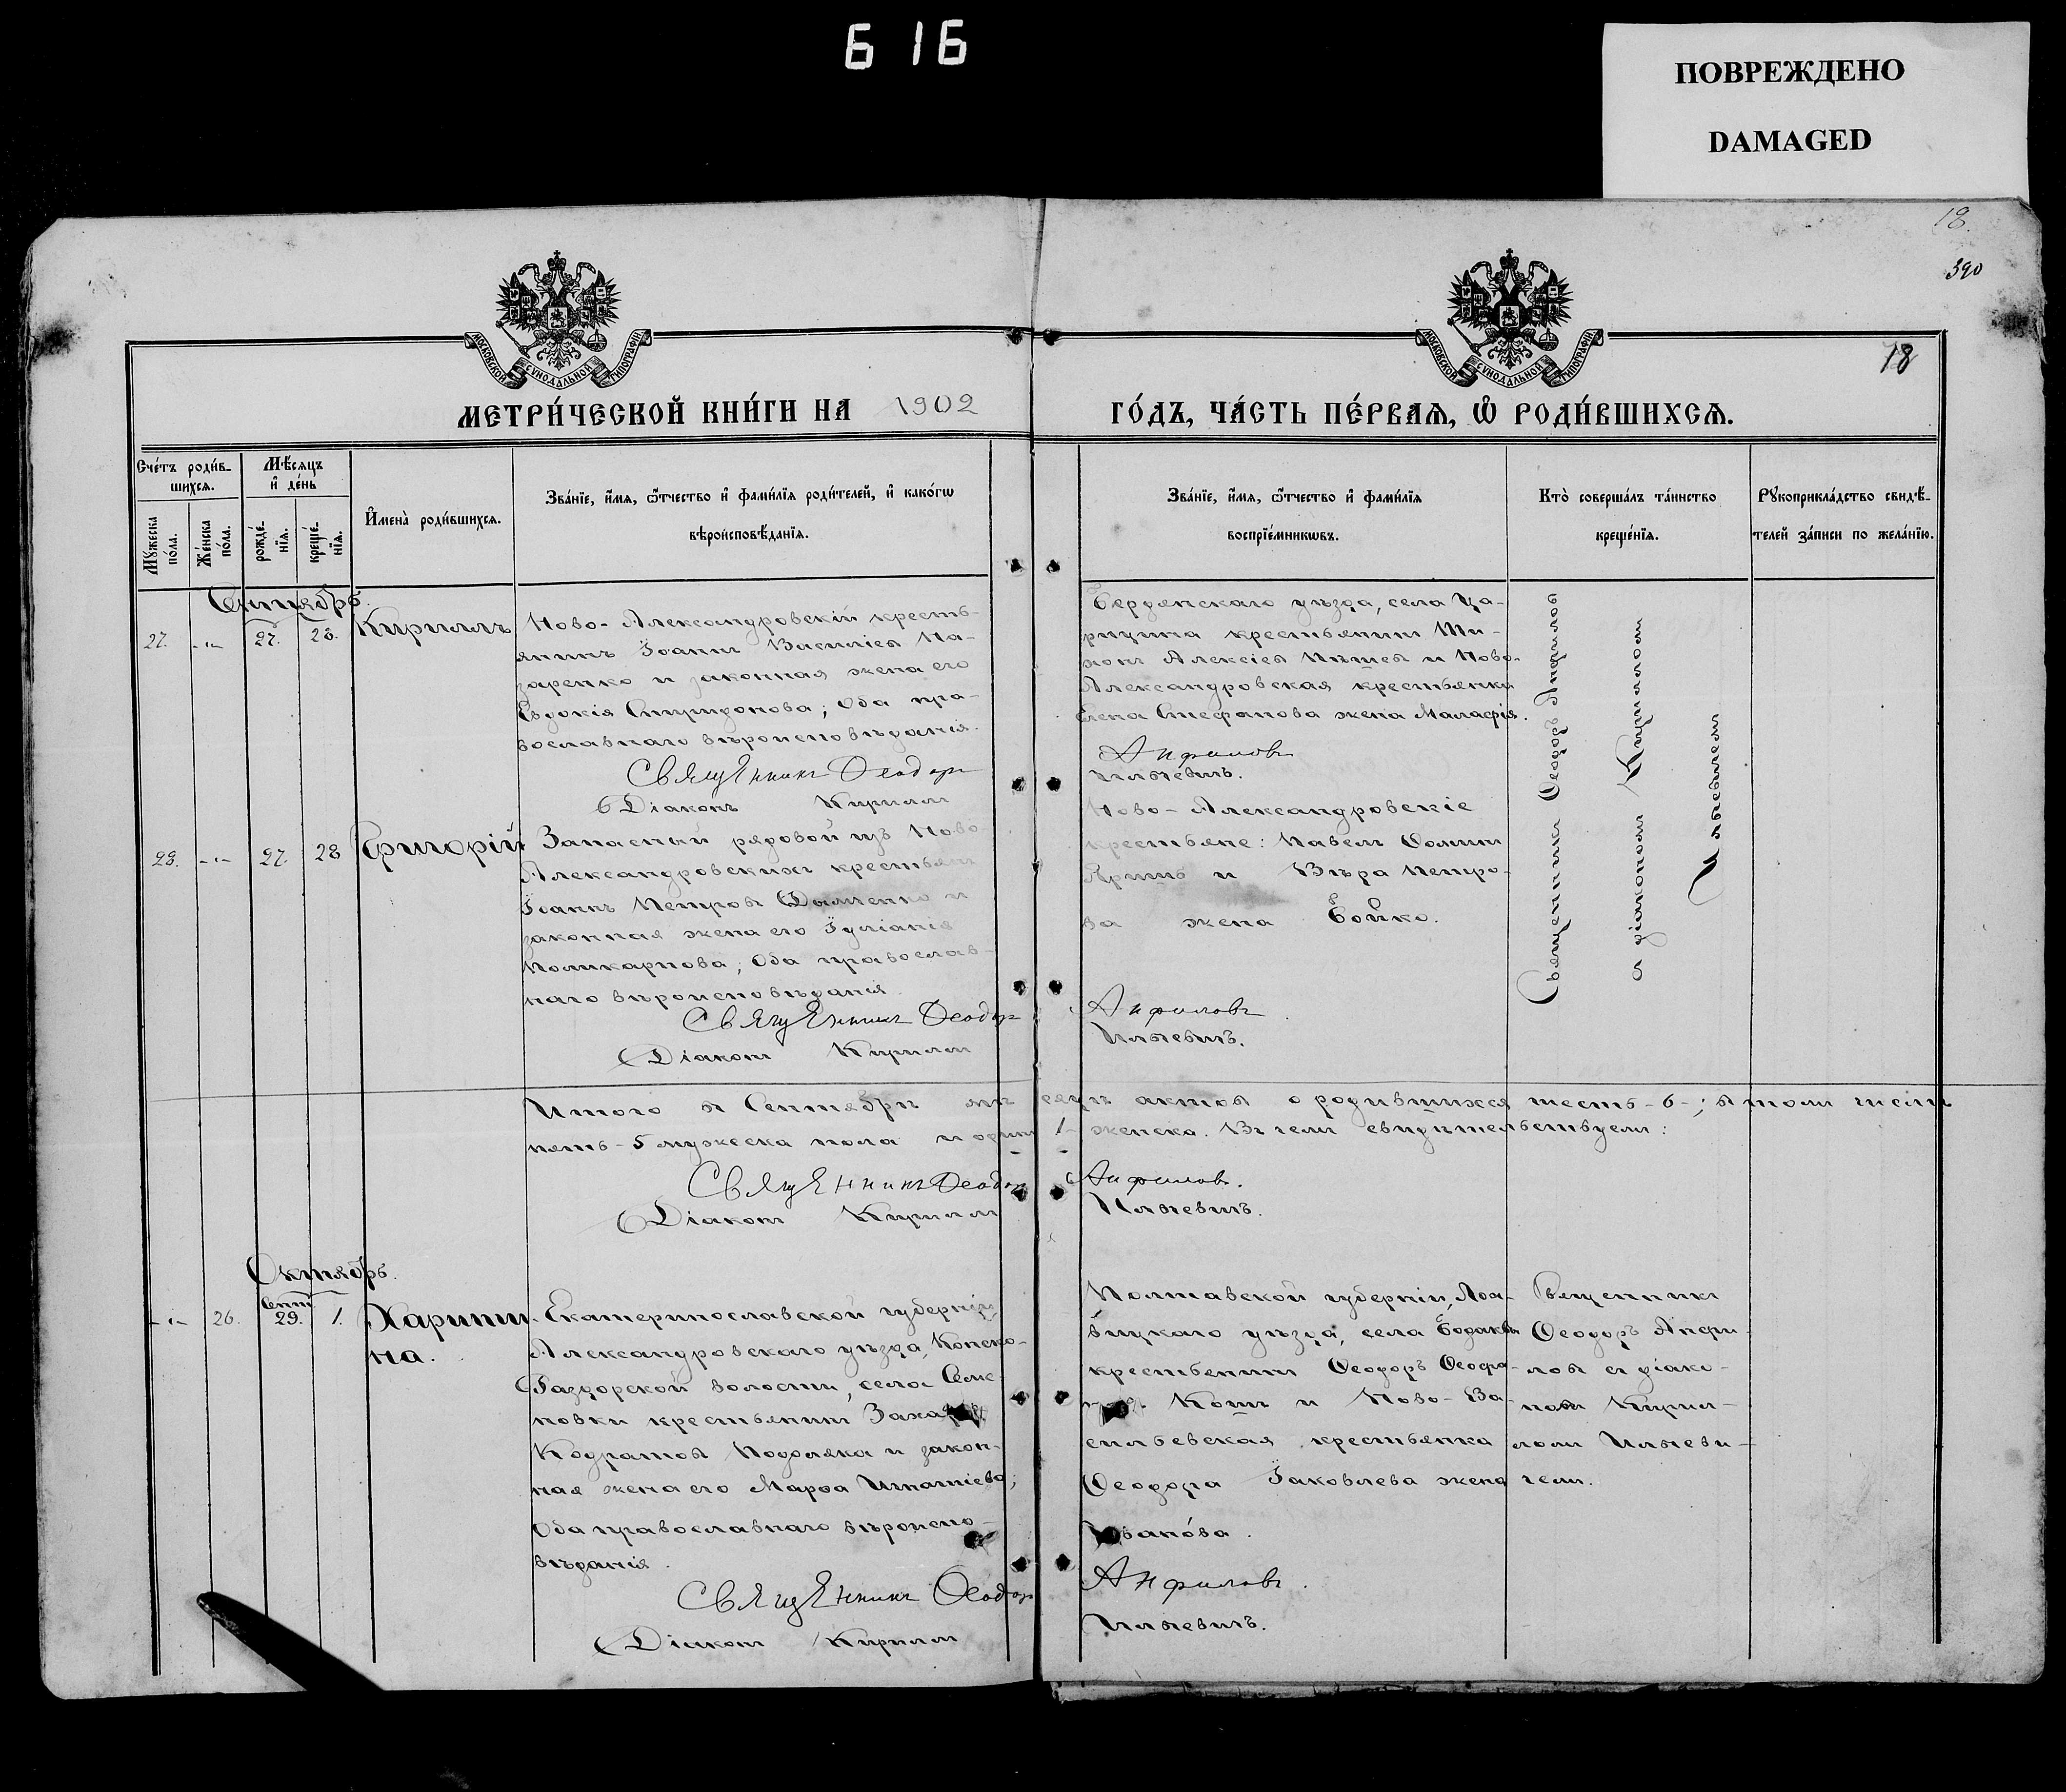 6 16
ПОВРЕЖДЕНО
DAMAGED
18.
390
18
МОСКОВСКОЙ СѴНОДАЛЬНОЙ ТИПОГРАФІИ
МОСКОВСКОЙ СѴНОДАЛЬНОЙ ТИПОГРАФІИ
МЕТРИ́ЧЕСКОЙ КНИ́ГИ НА 1902
ГО́ДЪ, ЧА́СТЬ ПЕ́РВАѦ, Ѡ҆ РОДИ́ВШИХСѦ.
Сче́тъ роди́в-
шихсѧ.
Мѣ́сѧцъ
и҆ де́нь
Мꙋ́жеска
по́ла.
Же́нска
по́ла.
рожде́-
нїѧ.
креще́-
нїѧ.
И҆мена̀ роди́вшихсѧ.
Зва́нїе, и҆́мѧ, ѻ҆́тчество и҆ фами́лїѧ роди́телей, и҆ како́гѡ
вѣроисповѣ́данїѧ.
Зва́нїе, и҆́мѧ, ѻ҆́тчество и҆ фами́лїѧ
воспрїе́мникѡвъ.
Кто̀ соверша́лъ та́инство
креще́нїѧ.
Рꙋкоприкла́дство свидѣ́-
телей за́писи по жела́нїю.
Сентябрь.
27. -"- 27. 28. Кириллъ
Ново-Александровскій кресть-
янинъ Іоаннъ Василіевъ На-
заренко и законная жена его
Евдокія Спиридонова; оба пра-
вославнаго вѣроисповѣданія.
Священникъ Ѳеодоръ
Діаконъ Кириллъ
Бердянскаго уѣзда, села Ца-
рицина крестьянинъ Ти-
хонъ Алексіевъ и Ново-
Александровская крестьянка
Елена Стефанова жена Малафія.
Анфиловъ
Ильевичъ.
Священникъ Ѳеодоръ Анфиловъ
съ діакономъ Кирилломъ
Ильевичемъ
28. -"- 27. 28 Григорій
Запасный рядовой изъ Ново
Александровскихъ крестьянъ
Іоаннъ Петровъ и
законная жена его Іуліанія
Поликарпова; оба православ-
наго вѣроисповѣданія.
Священникъ Ѳеодоръ
Діаконъ Кириллъ
Ново-Александровскіе
крестьяне: Павелъ Ѳоминъ
и Вѣра Петро-
ва жена Бойко.
Анфиловъ
Ильевичъ.
Итого въ Сентябрѣ мѣсяцѣ актовъ о родившихся шесть-6-; въ томъ числѣ
пять-5 мужеска пола и одинъ 1- женска. Въ чемъ свидѣтельствуемъ:
Священникъ Ѳеодоръ Анфиловъ.
Діаконъ Кириллъ Ильевичъ.
Октябрь.
-"- 26. Сент 29. 1. Харити-
на.
Екатеринославской губерніи,
Александровскаго уѣзда, Конско-
Раздорской волости, села Семе-
новки крестьянинъ
Кодратовъ Подоляка и закон-
ная жена его Марѳа Игнатіева;
оба православнаго вѣроиспо-
вѣданія.
Священникъ Ѳеодоръ
Діаконъ Кириллъ
Полтавской губерніи, Лох-
вицкаго уѣзда, села Бодаквы
крестьянинъ Ѳеодоръ Ѳеофа-
Кошъ и Ново-Ва-
сильевская крестьянка
Ѳеодора Іаковлева жена
Иванова.
Анфиловъ.
Ильевичъ.
Священникъ
Ѳеодоръ Анфи-
ловъ съ діако-
номъ Кирил-
ломъ Ильеви-
чемъ.